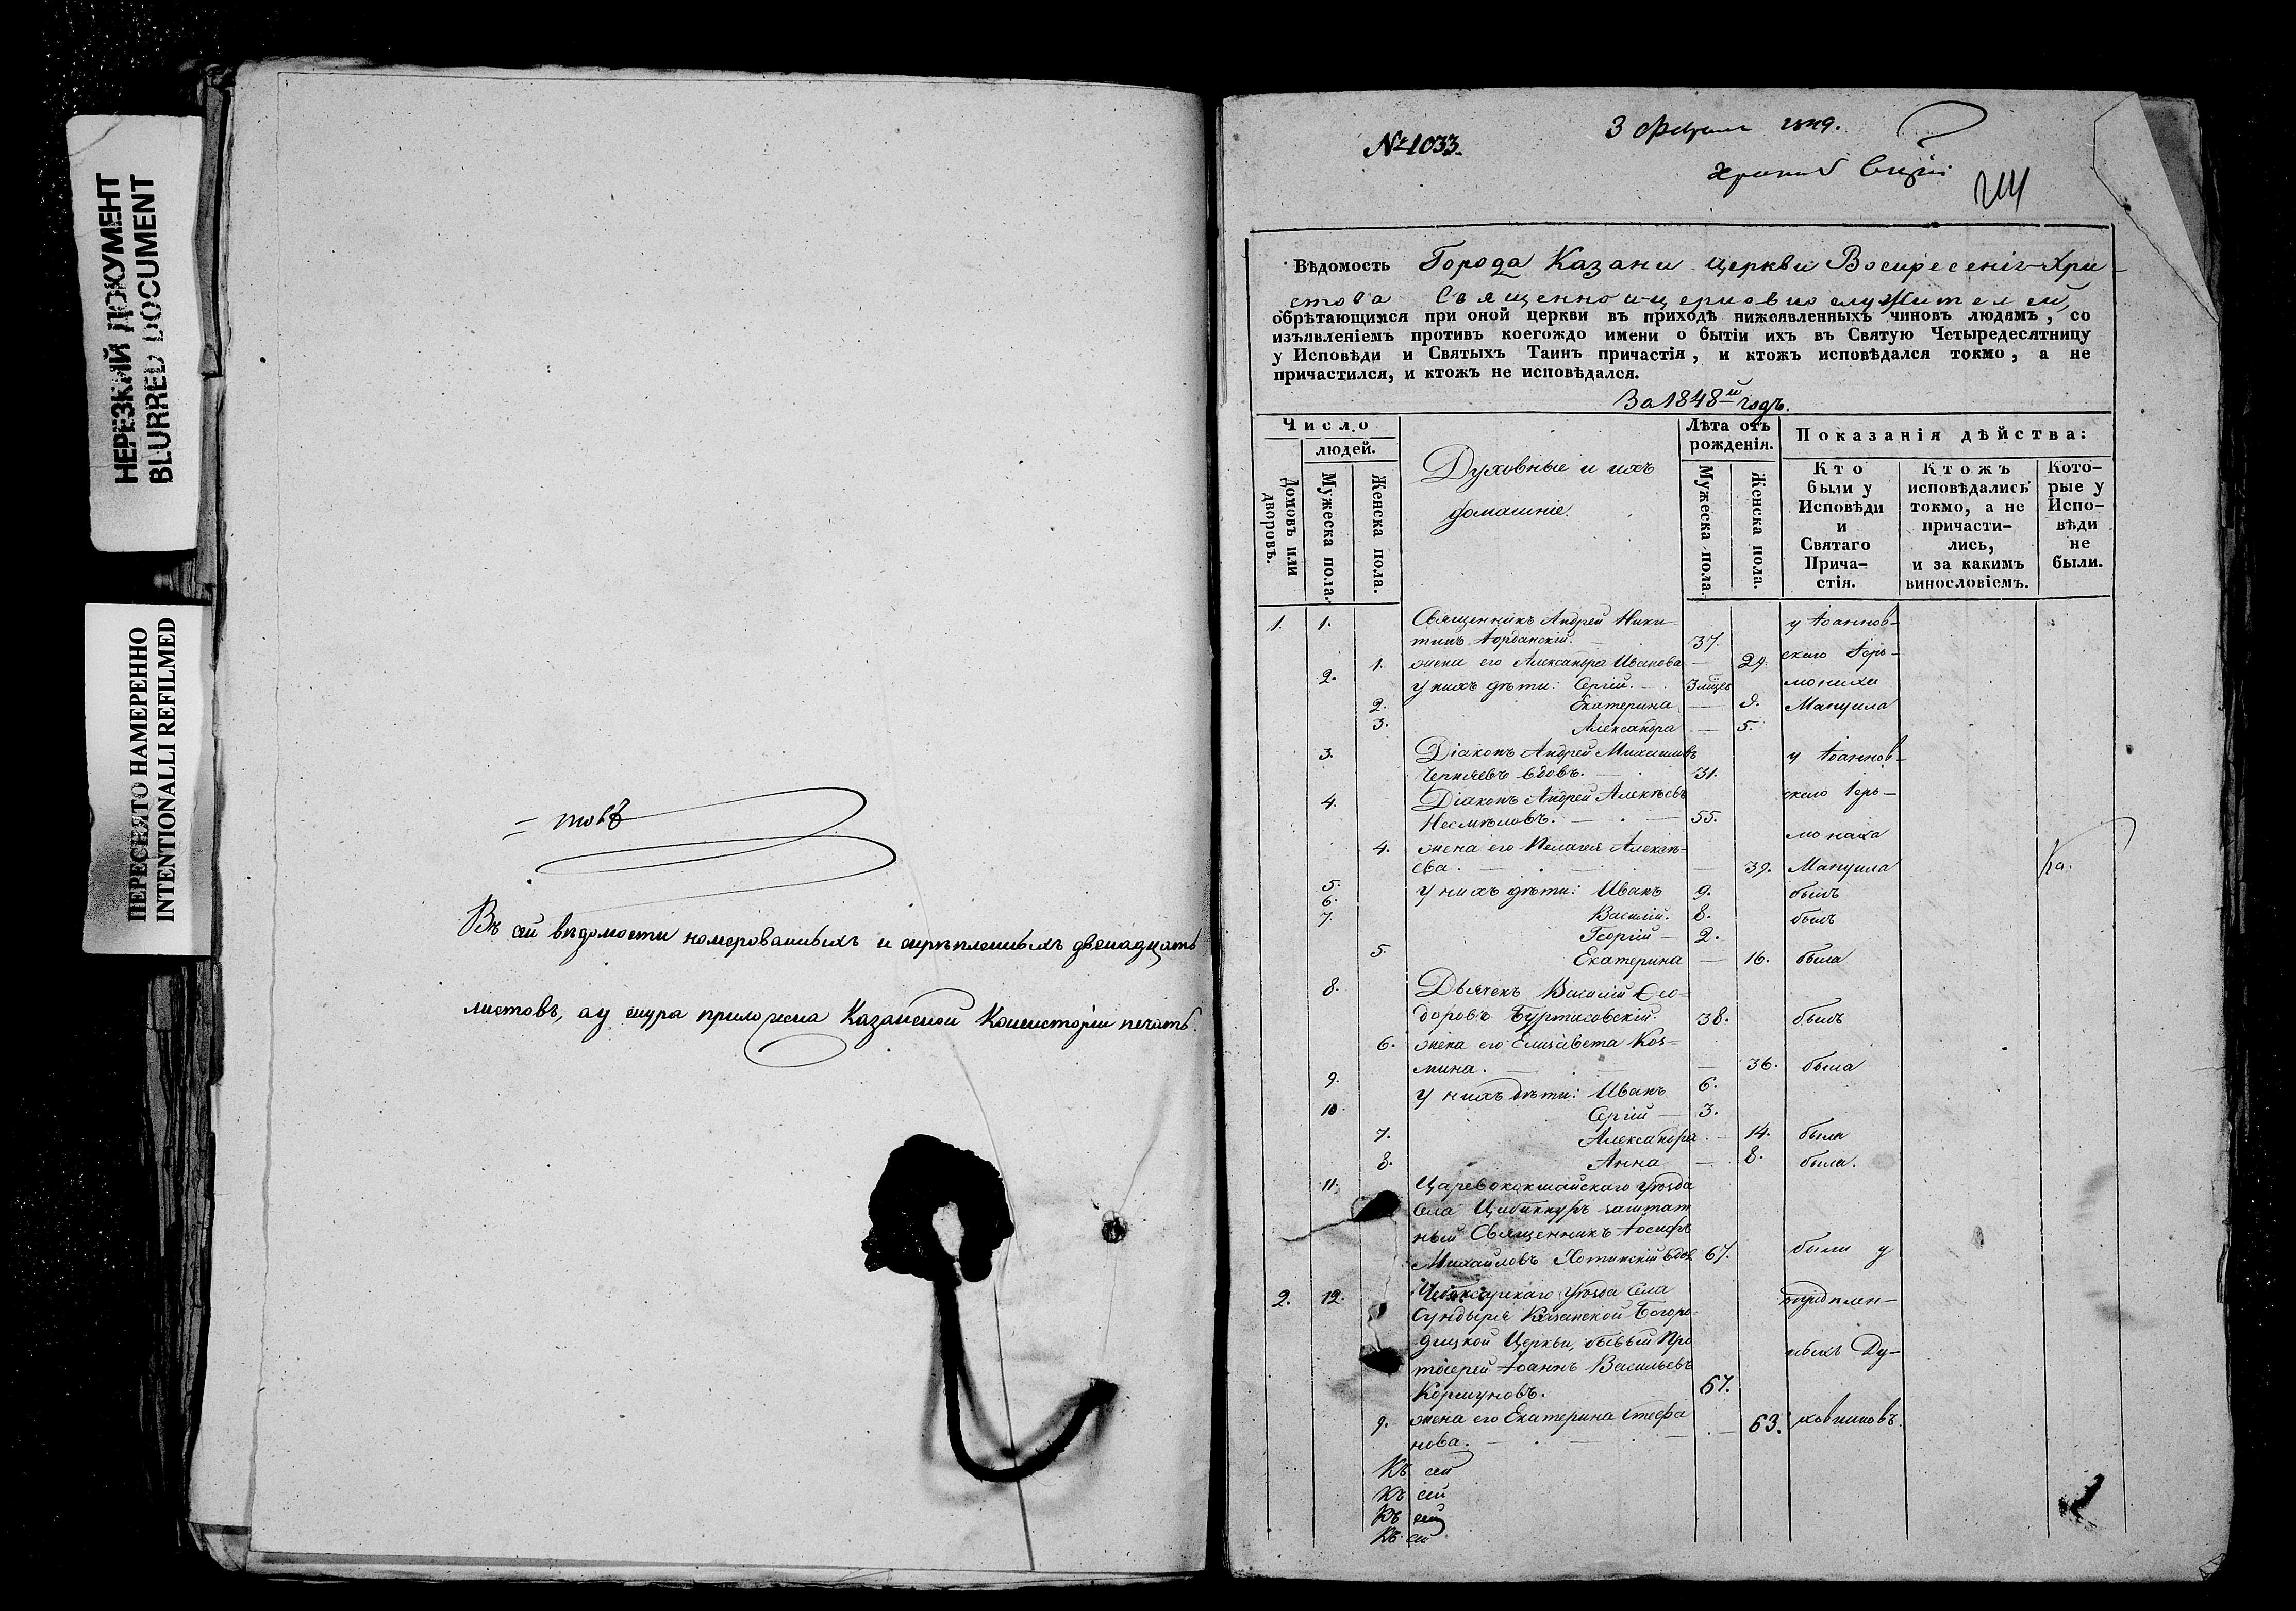 НЕРЕЗКИЙ ДОКУМЕНТ
BLURRED DOCUMENT
ПЕРЕСНЯТО НАМЕРЕННО
INTENTIONALLI REFILMED
= товъ
Въ сей вѣдомости номерованныхъ и скрѣпленныхъ двенадцать
листовъ, а у шнура приложена Казанской Консисторіи печать.
№ 1033.
3 Февраля 1849.
Вѣдомость Города Казани церкви Воскресенія Хри-
стова Священно и-церковно служителей,
обрѣтающимся при оной церкви въ приходѣ нижеявленныхъ чиновъ людямъ, со
изъявленіемъ противъ коегождо имени о бытіи ихъ въ Святую Четыредесятницу
у Исповѣди и Святыхъ Таинъ причастія, и ктожъ исповѣдался токмо, а не
причастился, и ктожъ не исповѣдался.
За 1848й годъ.
Число
людей.
Домовъ или дворовъ.
Мужеска пола.
Женска пола.
Духовные и ихъ
домашніе.
Лѣта отъ рожденія.
Мужеска пола.
Женска пола.
Показанія дѣйства:
Кто были у Исповѣди и Святаго Прича-стія.
Ктожъ исповѣдались токмо, а не причасти-лись, и за какимъ винословіемъ.
Кото-рые у Испо-вѣди не были.
1. 1. Священникъ Андрей Ники- у Іоаннов-
тинъ Іорданскій. 37.
1. жена его Александра Иванова — 29. скаго Іеро-
2. у нихъ дѣти: Сергій. 3 мѣсц монаха
2. Екатерина — 9. Мануила
3. Александра — 5.
3. Діаконъ Андрей Михаиловъ у Іоаннов-
Черняевъ вдовъ. 31.
4. Діаконъ Андрей Алексѣевъ скаго Іеро-
Несмѣловъ. 55.
4. жена его Пелагея Алексѣ- монаха
ева. — 39. Мануила
5. у нихъ дѣти: Иванъ 9. былъ
6. Василій. 8. былъ
7. Георгій — 2.
5. Екатерина — 16. была
8. Дьячекъ Василій Ѳео-
доровъ Бургисовскій. 38. былъ
6. жена его Елисавета Коз-
мина. — 36. была
9. у нихъ дѣти: Иванъ 6.
10. Сергій — 3.
7. Александра. — 14. была
8. Анна — 8. была.
11. Царевококшайскаго уѣзда
села Цибикнуръ заштат
ный Священникъ Іосифъ
Михайловъ Хотинскій вдов 67. были у
2. 12. Чебоксарскаго уѣзда села
Сундыря Казанской Богоро-
дицкой Церкви, бывый Про
тоіерей Іоаннъ Васильевъ ныхъ Ду-
Коршуновъ. 67.
9. жена его Екатерина Стефа — 63. ховниковъ.
нова.
Къ сей
Къ сей
Къ сей
Къ сей